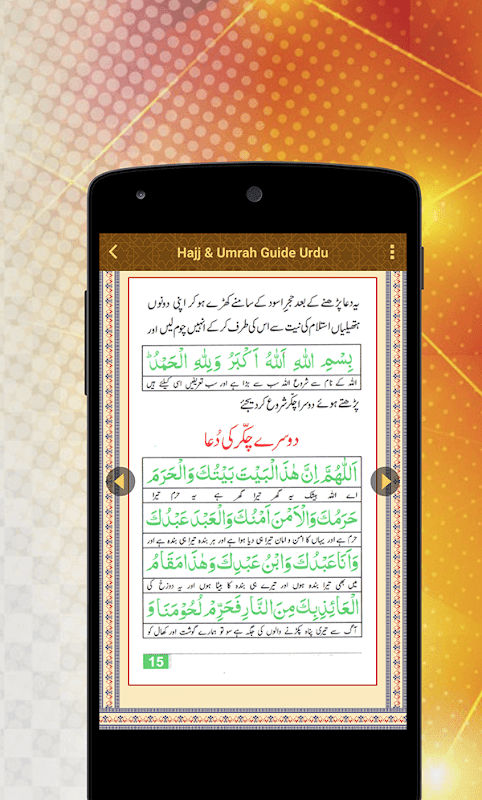 Hajj & Umrah Guide Urdu
یہ دعا پڑھنے کے بعد حجرِ اسود کے سامنے کھڑے ہو کر اپنی دونوں
ہتھیلیاں استلام کی نیت سے اس کی طرف کر کے انہیں چوم لیں اور
بِسْمِ اللهِ اَللهُ اَكْبَرُ وَلِلّٰهِ الْحَمْدُ ؕ
اللہ کے نام سے شروع اللہ سب سے بڑا ہے اور سب تعریفیں اسی کیلئے ہیں
پڑھتے ہوئے دوسرا چکّر شروع کر دیجئے
دوسرے چکّر کی دُعا
اَللّٰهُمَّ اِنَّ هٰذَا الْبَيْتَ بَيْتُكَ وَالْحَرَمَ
اے اللہ بیشک یہ گھر تیرا گھر ہے یہ حرم تیرا
حَرَمُكَ وَالْاَمْنَ اَمْنُكَ وَالْعَبْدَ عَبْدُكَ
حرم ہے اور یہاں کا امن و امان تیرا ہی دیا ہوا ہے اور ہر بندہ تیرا ہی بندہ ہے اور
وَاَنَا عَبْدُكَ وَابْنُ عَبْدِكَ وَهٰذَا مَقَامُ
میں بھی تیرا بندہ ہوں اور تیرے ہی بندہ کا بیٹا ہوں اور یہ دوزخ کی
الْعَائِذِ بِكَ مِنَ النَّارِ فَحَرِّمْ لُحُوْمَنَا وَ
آگ سے تیری پناہ پکڑنے والوں کی جگہ ہے سو تو ہمارے گوشت اور کھال کو
15